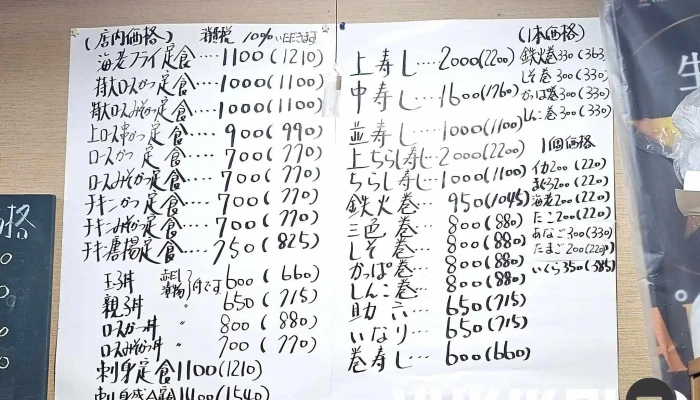 (店内価格) 消費税 10%いただきます
海老フライ定食‥‥1100(1210)
特大ロースかつ定食‥‥1000(1100)
特大ロースみそかつ定食‥‥1000(1100)
上ロース串かつ定食‥‥900(990)
ロースかつ定食‥‥700(770)
ロースみそかつ定食‥‥700(770)
チキンかつ定食‥‥700(770)
チキンみそかつ定食‥‥700(770)
チキン唐揚定食‥‥750(825)
玉子丼 600(660)
親子丼 〃 650(715)
ロースかつ丼 〃 800(880)
ロースみそかつ丼 〃 700(770)
刺身定食1100(1210)
1400(1540)
上寿し‥‥2000(2200)
中寿し‥‥1600(1760)
並寿し‥‥1000(1100)
上ちらし寿し‥2000(2200)
ちらし寿し‥1000(1100)
鉄火巻‥‥950(1045)
三色巻‥‥800(880)
しそ巻‥‥800(880)
かっぱ巻‥‥800(880)
しんこ巻‥‥800(880)
助六‥‥650(715)
いなり‥‥650(715)
巻寿し‥‥600(660)
(1本価格)
鉄火巻330(363
しそ巻300(330)
かっぱ巻300(330)
しんこ巻300(330)
1個価格
イカ200(220)
まぐろ200(220)
海老200(220)
たこ200(220)
あなご300(330)
たまご200(220)
いくら350(385)
格